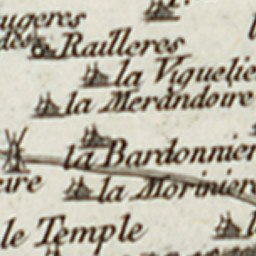 ugeres
des Railleres
la Viguelie
la Merandoire
la Bardonnier
la Morinier
eire
le Temple